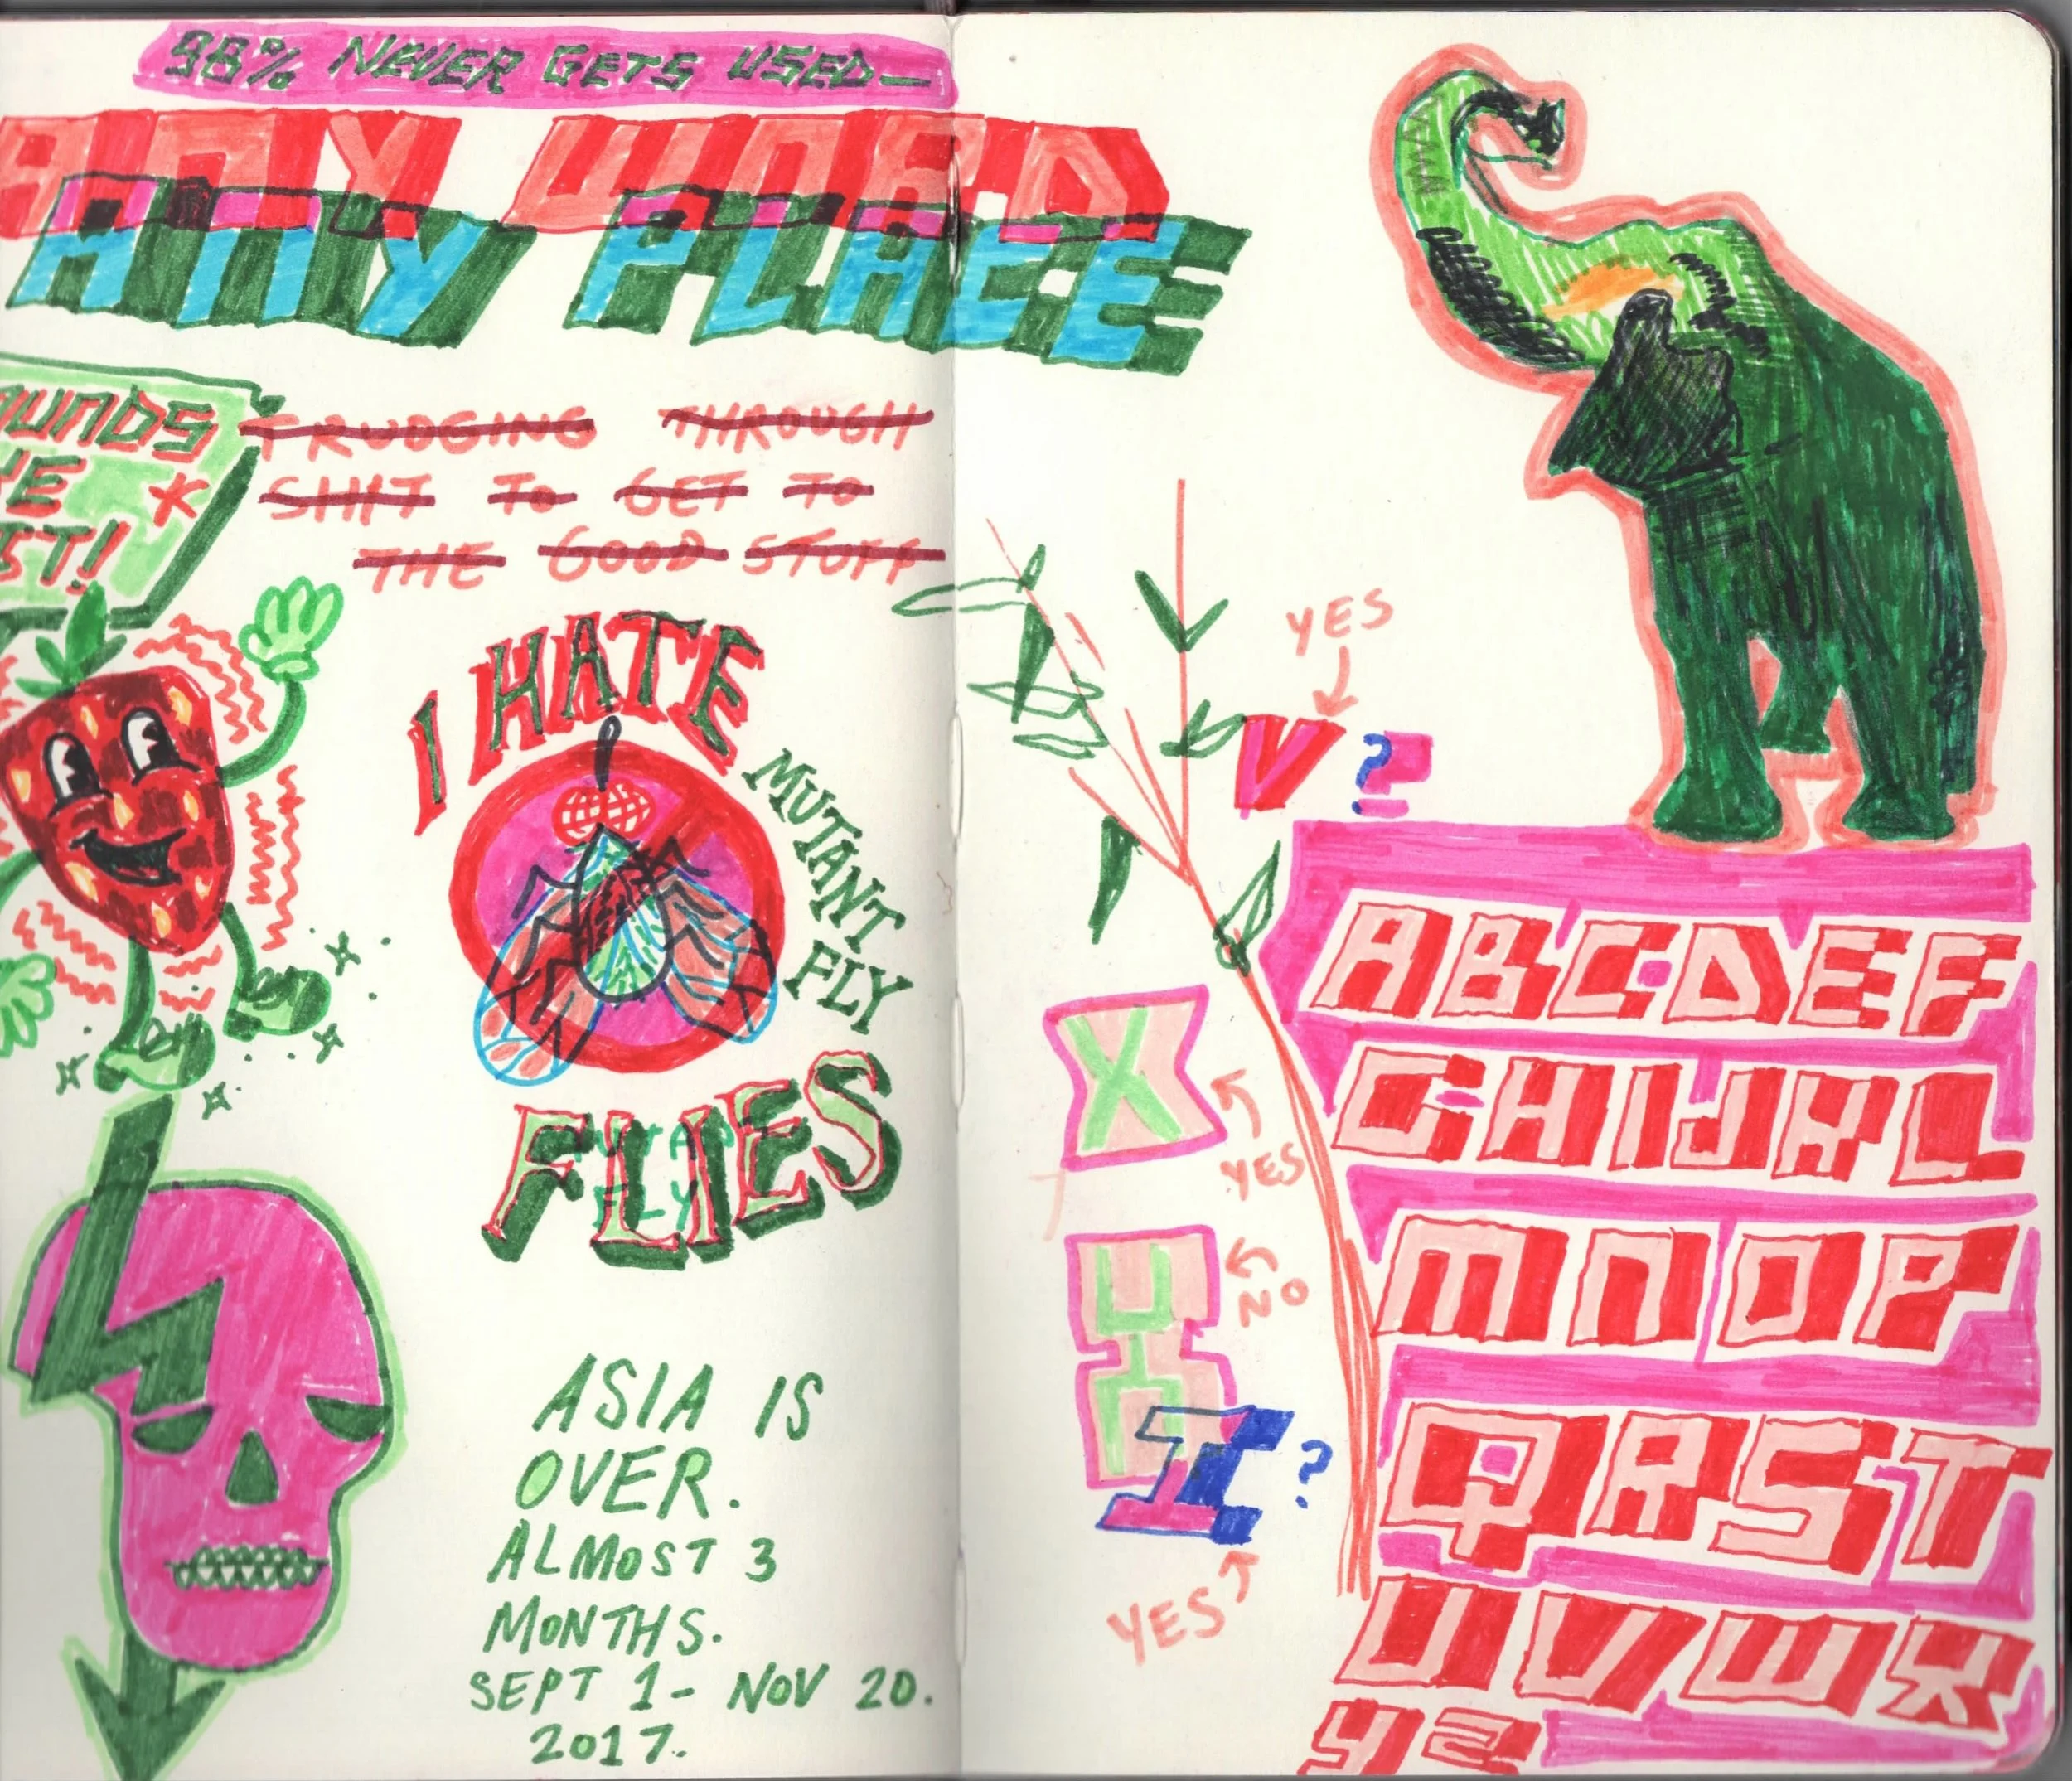 98% NEVER GETS USED—
ANY WORD
ANY PLACE
TRUDGING THROUGH
SHIT TO GET TO
THE GOOD STUFF
I HATE
MUTANT
FLY
FLIES
ASIA IS
OVER.
ALMOST 3
MONTHS.
SEPT 1 - NOV 20.
2017.
YES
V ?
X
YES
NO
I ?
YES
ABCDEF
GHIJKL
MNOP
QRST
UVWX
YZ